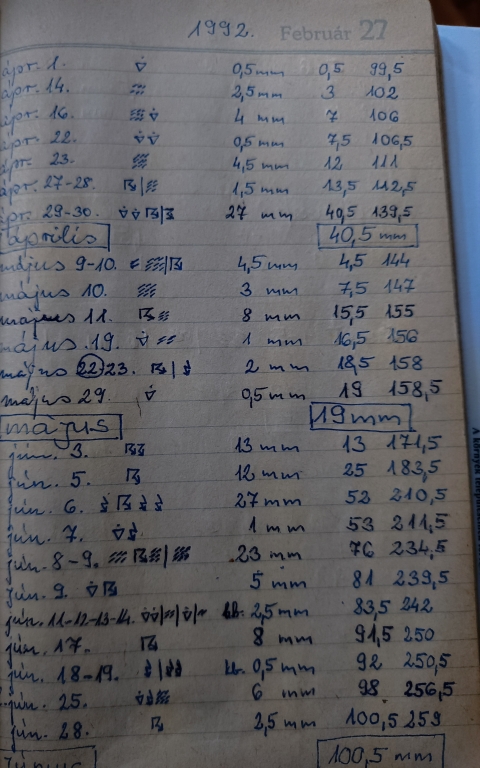 1992. Február 27
ápr. 1. 0,5 mm 0,5 99,5
ápr. 14. 2,5 mm 3 102
ápr. 16. 4 mm 7 106
ápr. 22. 0,5 mm 7,5 106,5
ápr. 23. 4,5 mm 12 111
ápr. 27-28. 1,5 mm 13,5 112,5
ápr. 29-30. 27 mm 40,5 139,5
április 40,5 mm
május 9-10. 4,5 mm 4,5 144
május 10. 3 mm 7,5 147
május 11. 8 mm 15,5 155
május 19. 1 mm 16,5 156
május 22-23. 2 mm 18,5 158
május 29. 0,5 mm 19 158,5
május 19 mm
jún. 3. 13 mm 13 171,5
jún. 5. 12 mm 25 183,5
jún. 6. 27 mm 52 210,5
jún. 7. 1 mm 53 211,5
jún. 8-9. 23 mm 76 234,5
jún. 9. 5 mm 81 239,5
jún. 11-12-13-14. kb. 2,5 mm 83,5 242
jún. 17. 8 mm 91,5 250
jún. 18-19. kb. 0,5 mm 92 250,5
jún. 25. 6 mm 98 256,5
jún. 28. 2,5 mm 100,5 259
június 100,5 mm